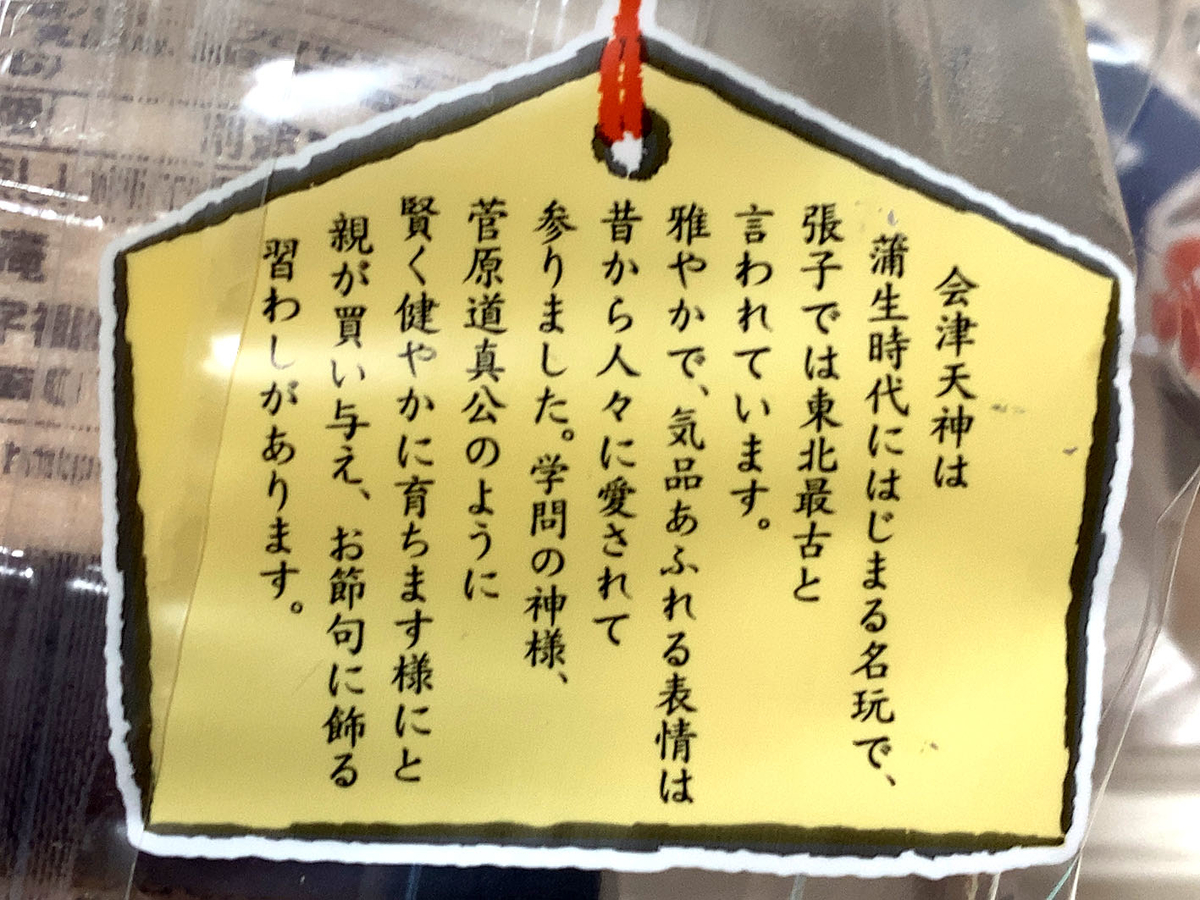 会津天神は
蒲生時代にはじまる名玩で、
張子では東北最古と
言われています。
雅やかで、気品あふれる表情は
昔から人々に愛されて
参りました。学問の神様、
菅原道真公のように
賢く健やかに育ちます様にと
親が買い与え、お節句に飾る
習わしがあります。